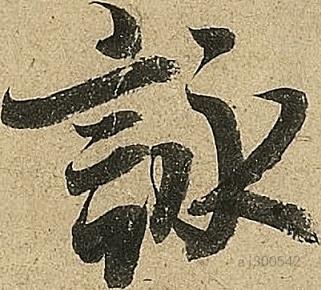 詠
aj300542